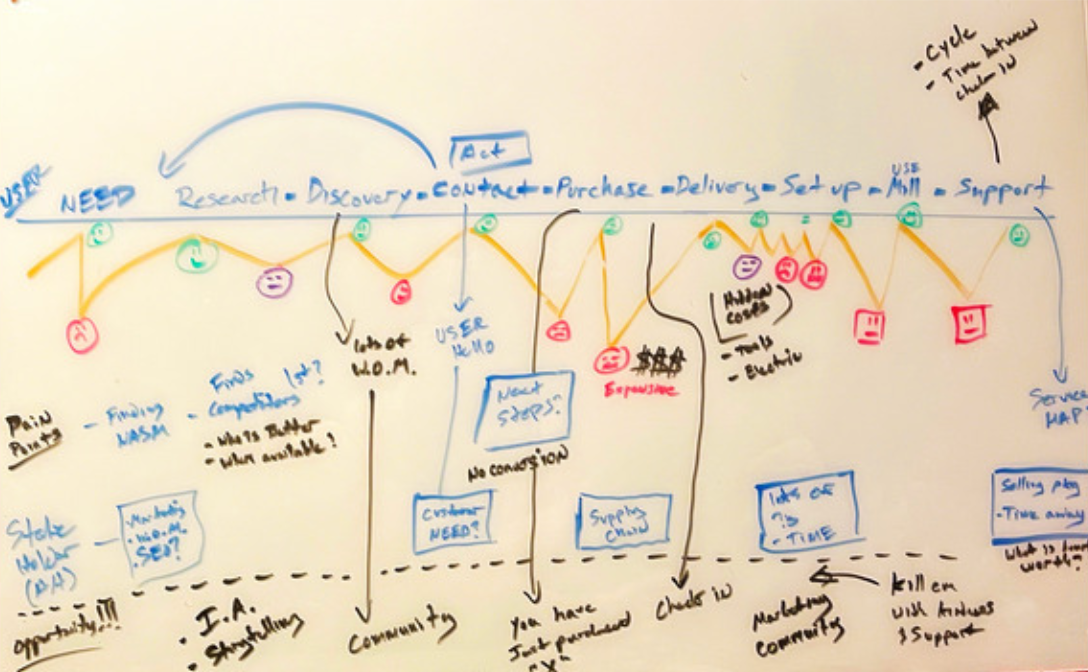 - Cycle
- Time between
check in
Act
USER
NEED
Research - Discovery - Contact - Purchase - Delivery - Set up - Mill - Support
USE
Lots of
W.O.M.
USER
Hello
$$$
Expensive
Hidden
Costs
- Tools
- Electric
Service
MAP
Pain
Points
- Finding
NASM
- Finds
Competitors 1st?
- Who is Better
- When available?
Next
Steps?
No conversion
Stake
Holder
(AH)
- Marketing
- W.O.M.
- SEO?
Customer
NEED?
Supply
Chain
lots of
?'s
- TIME
Selling pkg
- Time away
What is
worth?
Opportunity!!!
- I.A.
- Storytelling
Community
You have
Just purchased
"X"
Check in
Marketing
Community
Kill em
with kindness
& Support